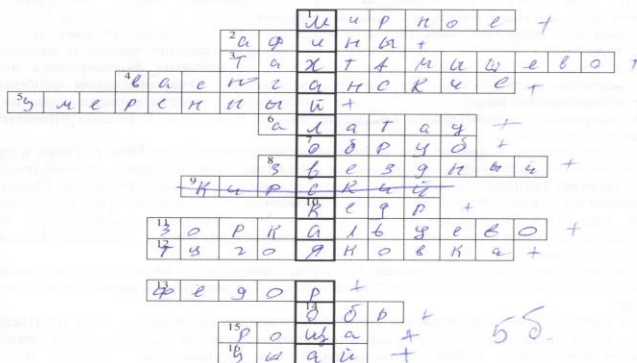 1 Мирное +
2 Афины +
3 Тахтамышево +
4 васюганские +
5 умеренный +
6 алатау +
7 обруб +
8 звездный +
9 Кирский
10 кедр +
11 Зоркальцево +
12 Тугояковка +
13 Федор +
14 обь +
15 роща +
16 Ушай +
5 б.